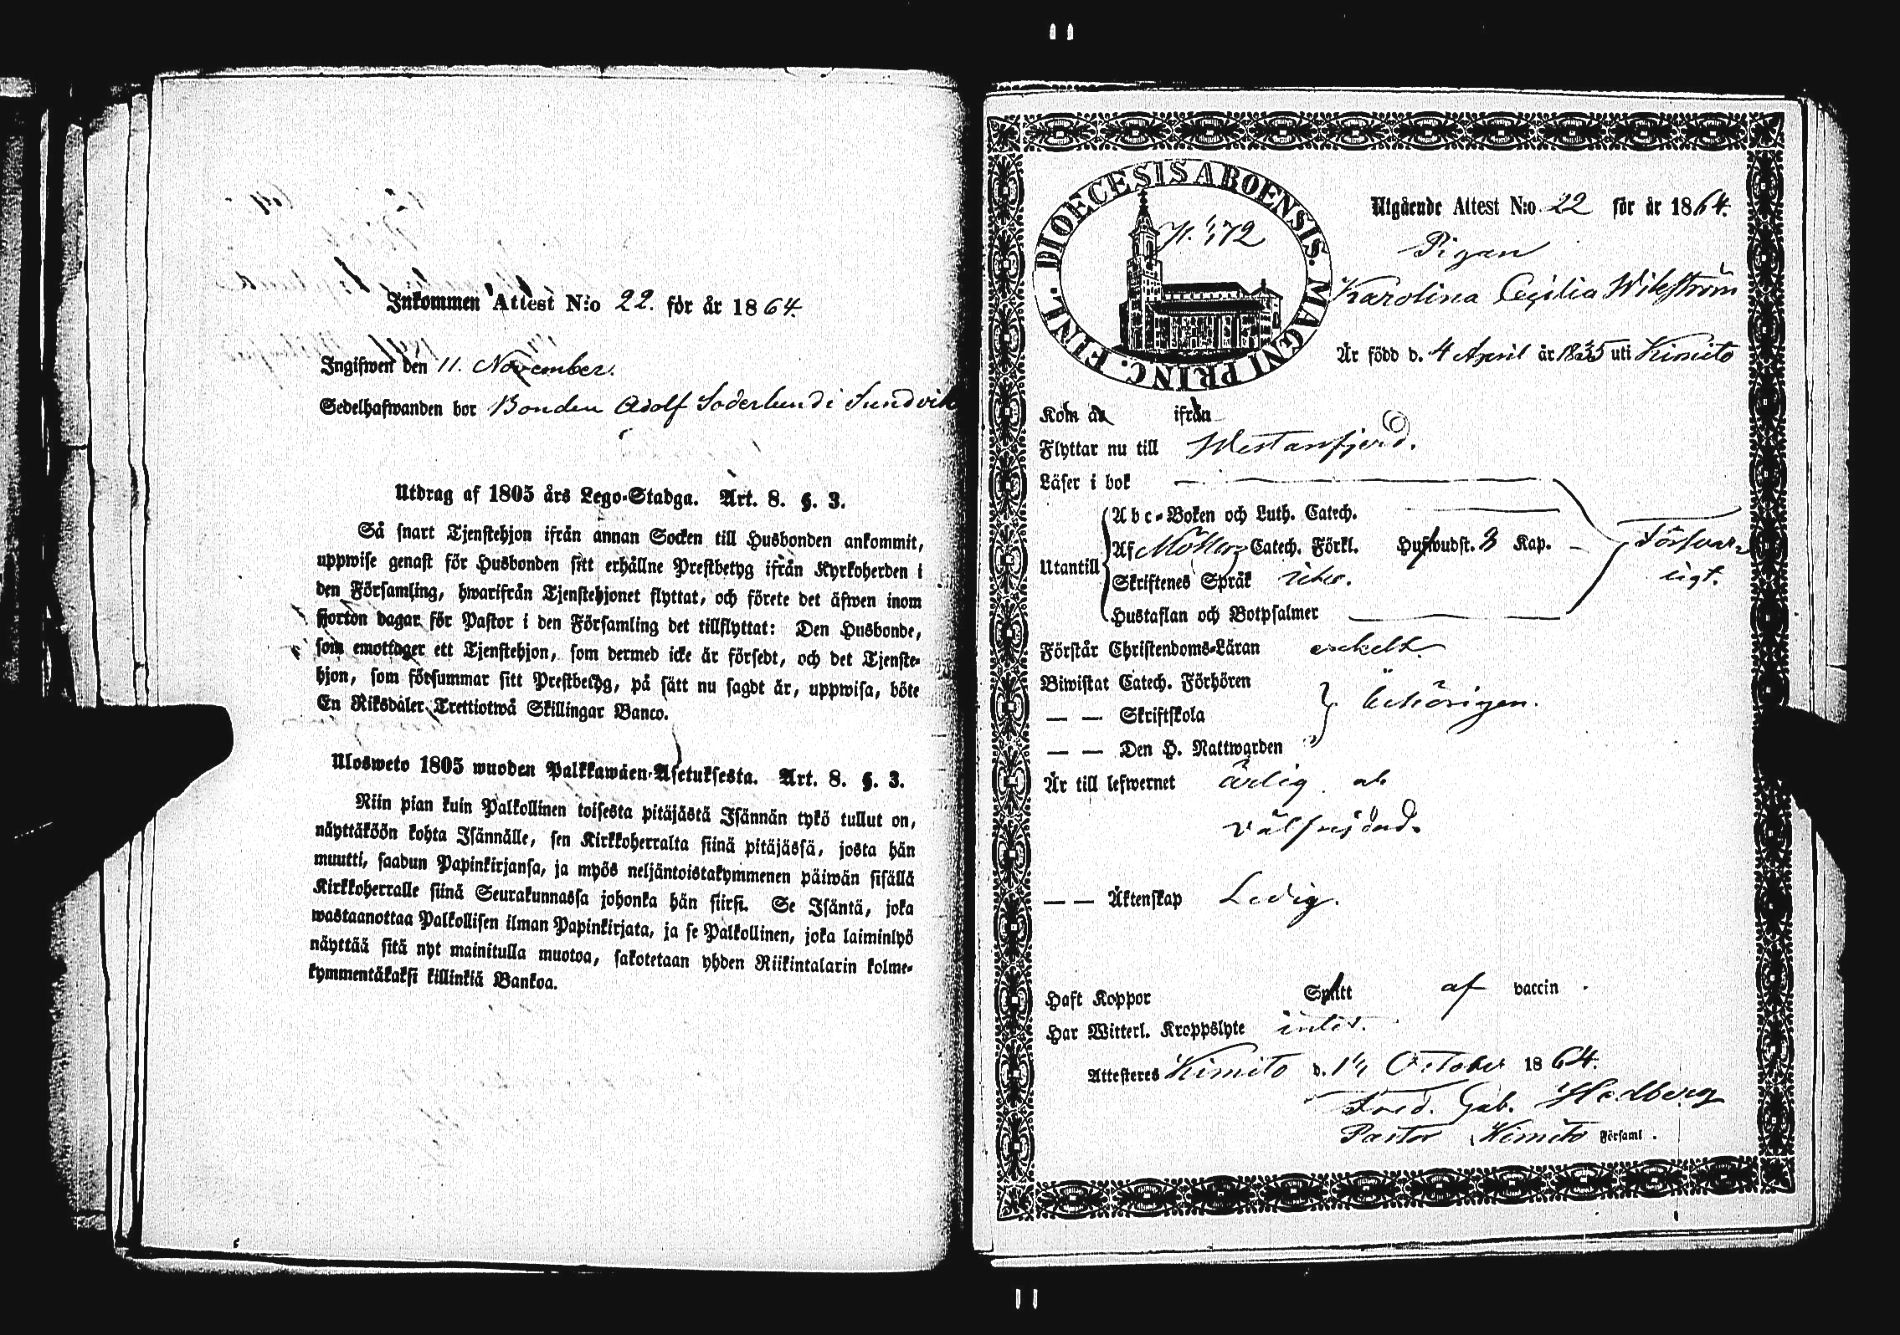 Inkommen Attest N:o 22. för år 1864.
Ingifwen den 11. November.
Sedelhafwanden bor Bonden Adolf Söderlund i Sundvik
Utdrag af 1805 års Lego-Stadga. Art. 8. §. 3.
Så snart Tjenstehjon ifrån annan Socken till Husbonden ankommit,
uppwise genast för Husbonden sitt erhållne Prestbetyg ifrån Kyrkoherden i
den Församling, hwarifrån Tjenstehjonet flyttat, och förete det äfwen inom
fjorton dagar för Pastor i den Församling det tillflyttat: Den Husbonde,
som emottager ett Tjenstehjon, som dermed icke är försedt, och det Tjenste-
hjon, som försummar sitt Prestbetyg, på sätt nu sagdt är, uppwisa, böte
En Riksdaler Trettiotwå Skillingar Banco.
Ulosweto 1805 wuoden Palkkawäen-Asetuksesta. Art. 8. §. 3.
Niin pian kuin Palkollinen toisesta pitäjästä Isännän tykö tullut on,
näyttäköön kohta Isännälle, sen Kirkkoherralta siinä pitäjässä, josta hän
muutti, saadun Papinkirjansa, ja myös neljäntoistakymmenen päiwän sisällä
Kirkkoherralle siinä Seurakunnassa johonka hän siirsi. Se Isäntä, joka
wastaanottaa Palkollisen ilman Papinkirjata, ja se Palkollinen, joka laiminlyö
näyttää sitä nyt mainitulla muotoa, sakotetaan yhden Riikintalarin kolme-
kymmentäkaksi killinkiä Bankoa.
DIOECESIS ABOENSIS. MAGNI PRINC. FINL.
172
Utgående Attest N:o 22 för år 1864.
Pigan
Karolina Cecilia Wikström
Är född d. 4 April år 1835 uti Kimito
Kom år ifrån
Flyttar nu till Westanfjerd.
Läser i bok
Abc-Boken och Luth. Catech.
Af Catech. Förkl. Hufwudst. 3 Kap.
Försvar-
ligt.
Utantill
Skriftenes Språk
Hustaflan och Botpsalmer
Förstår Christendoms-Läran enkelt.
Biwistat Catech. Förhören
— — Skriftskola behörigen.
— — Den H. Nattwarden
Är till lefwernet ärlig o.
välfrejdad.
— — Äktenskap Ledig.
Haft Koppor Smitt af vaccin
Har Witterl. Kroppslyte intet.
Attesteres Kimito d. October 1864.
Fred. Gab. Hedberg
Pastor i Kimito Församl.